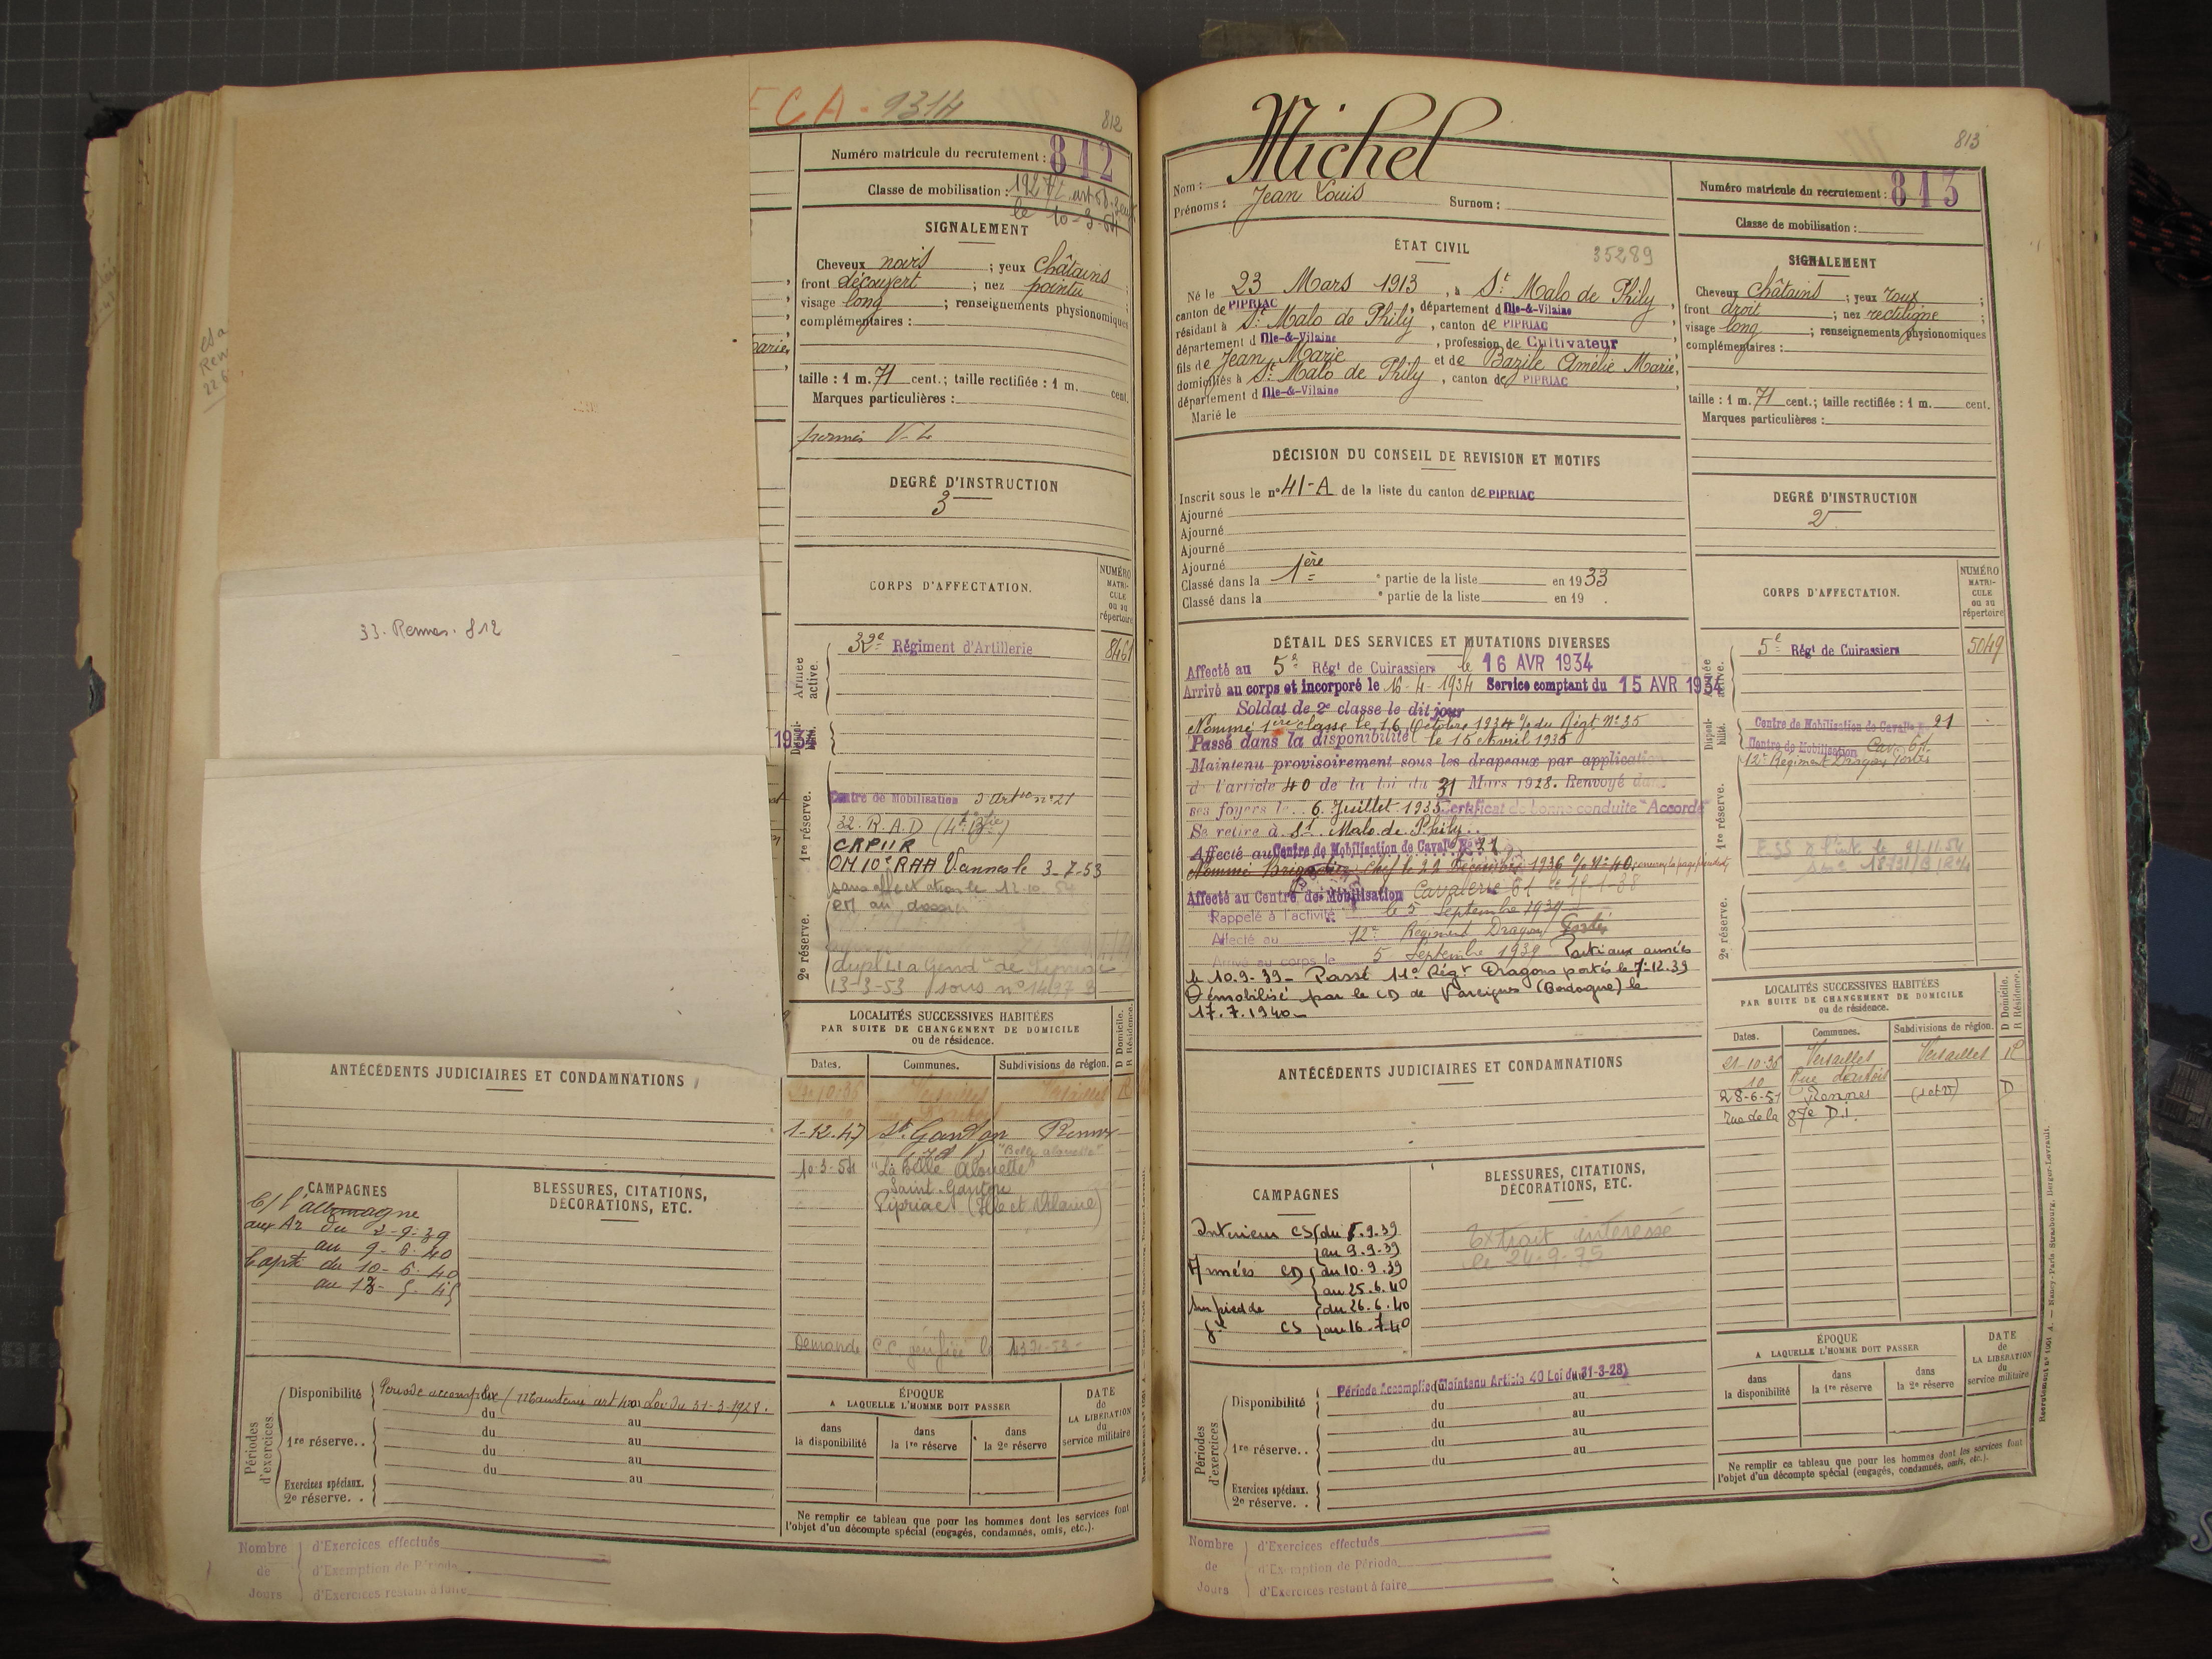 CA - 9314
812
Numéro matricule du recrutement : 812
Classe de mobilisation : 1927
le 10-3-54
SIGNALEMENT
Cheveux noirs ; yeux châtains
front découvert ; nez pointu ;
visage long ; renseignements physionomiques
complémentaires :
taille : 1 m. 71 cent. ; taille rectifiée : 1 m. cent.
Marques particulières :
permis V-L
DEGRÉ D'INSTRUCTION
3
33. Rennes. 812
CORPS D'AFFECTATION.
NUMÉRO MATRICULE ou au répertoire
Armée active.
32e Régiment d'Artillerie 8461
Disponibilité.
1re réserve.
Centre de Mobilisation d'Artie n° 21
32. R.A.D (4e Btie)
CRPIIR
OM 10e RAA Vannes le 3-7-53
sans affectation le 12.10.54
em au dossier
2e réserve.
13-3-53 sous n° 1497
LOCALITÉS SUCCESSIVES HABITÉES
PAR SUITE DE CHANGEMENT DE DOMICILE
ou de résidence.
D Domicile. R Résidence.
Dates. Communes. Subdivisions de région.
Versailles Versailles R
1-12-47 St Ganton Rennes
"Belle alouette"
10-3-54 "La Belle Alouette"
Saint-Ganton
Pipriac (Ille et Vilaine)
Demande C.C.
ANTÉCÉDENTS JUDICIAIRES ET CONDAMNATIONS
CAMPAGNES
C/ l'allemagne
aux Ar du 2-9-39
au 9-6-40
Capté du 10-6-40
au 13-5-45
BLESSURES, CITATIONS,
DÉCORATIONS, ETC.
Périodes d'exercices.
Disponibilité Période accomplie (Maintenu art 40 Loi du 31-3-1928.
du au
1re réserve.. du au
du au
du au
Exercices spéciaux.
2e réserve. .
ÉPOQUE
A LAQUELLE L'HOMME DOIT PASSER
dans la disponibilité
dans la 1re réserve
dans la 2e réserve
DATE de LA LIBÉRATION du service militaire
Ne remplir ce tableau que pour les hommes dont les services font
l'objet d'un décompte spécial (engagés, condamnés, omis, etc.).
Nombre de Jours
d'Exercices effectués
d'Exemption de Période
d'Exercices restant à faire
813
Nom : Michel
Prénoms : Jean Louis Surnom :
Numéro matricule du recrutement : 813
Classe de mobilisation :
ÉTAT CIVIL
35289
Né le 23 Mars 1913, à St Malo de Phily,
canton de PIPRIAC, département d Ille-&-Vilaine
résidant à St Malo de Phily, canton de PIPRIAC
département d Ille-&-Vilaine, profession de Cultivateur
fils de Jean Marie et de Bazile Amélie Marie,
domiciliés à St Malo de Phily, canton de PIPRIAC
département d Ille-&-Vilaine
Marié le
SIGNALEMENT
Cheveux châtains ; yeux roux ;
front droit ; nez rectiligne ;
visage long ; renseignements physionomiques
complémentaires :
taille : 1 m. 71 cent. ; taille rectifiée : 1 m. cent.
Marques particulières :
DÉCISION DU CONSEIL DE REVISION ET MOTIFS
Inscrit sous le n° 41-A de la liste du canton de PIPRIAC
Ajourné
Ajourné
Ajourné
Ajourné
Classé dans la 1ère e partie de la liste en 1933
Classé dans la e partie de la liste en 19 .
DEGRÉ D'INSTRUCTION
2
CORPS D'AFFECTATION.
NUMÉRO MATRICULE ou au répertoire
DÉTAIL DES SERVICES ET MUTATIONS DIVERSES
Affecté au 5e Régt de Cuirassiers le 16 AVR 1934
Arrivé au corps et incorporé le 16-4-1934 Service comptant du 15 AVR 1934
Soldat de 2e classe le dit jour
Nommé 1ère classe le 16 Octobre 1934 % du Régt N° 35
Passé dans la disponibilité le 15 Avril 1935
Maintenu provisoirement sous les drapeaux par application
de l'article 40 de la loi du 31 Mars 1928. Renvoyé dans
ses foyers le 6. Juillet 1935 Certificat de bonne conduite "Accordé"
Se retire à St Malo de Phily
Affecté au Centre de Mobilisation de Cavalie N°
Nommé Brigadier chef le 22 Décembre 1936 % N° 40
Affecté au Centre de Mobilisation Cavalerie 61
Rappelé à l'activité le 5 Septembre 1939
Affecté au 12e Régiment Dragons Portés
Arrivé au corps le 5 Septembre 1939 Parti aux armées
le 10.9.39 - Passé 11e Régt Dragons portés le 7.12.39
Démobilisé par le CD de Vareignes (Dordogne) le
17.7.1940 -
Armée active.
5e Régt de Cuirassiers 5049
Disponibilité.
Centre de Mobilisation de Cavalie N° 21
Centre de Mobilisation Cav. 61
12e Régiment Dragons Portés
1re réserve.
2e réserve.
ANTÉCÉDENTS JUDICIAIRES ET CONDAMNATIONS
LOCALITÉS SUCCESSIVES HABITÉES
PAR SUITE DE CHANGEMENT DE DOMICILE
ou de résidence.
D Domicile. R Résidence.
Dates. Communes. Subdivisions de région.
21-10-36 Versailles Versailles R
28-6-51 Rennes D
rue de la 87e D.I.
CAMPAGNES
Intérieur CS du 5.9.39
au 9.9.39
Armées CD du 10.9.39
au 25.6.40
Sur pied de du 26.6.40
gre CS au 16.7.40
BLESSURES, CITATIONS,
DÉCORATIONS, ETC.
Extrait intéressé
le 24.9.75
Périodes d'exercices
Période Accomplie (Maintenu Article 40 Loi du 31-3-28)
Disponibilité du au
du au
1re réserve.. du au
du au
du
Exercices spéciaux.
2e réserve. .
ÉPOQUE
A LAQUELLE L'HOMME DOIT PASSER
dans la disponibilité
dans la 1re réserve
dans la 2e réserve
DATE de LA LIBÉRATION du service militaire
Ne remplir ce tableau que pour les hommes dont les services font
l'objet d'un décompte spécial (engagés, condamnés, omis, etc.).
Recrutement n° 1661 A. — Nancy-Paris-Strasbourg, Berger-Levrault.
Nombre de Jours
d'Exercices effectués
d'Exemption de Période
d'Exercices restant à faire